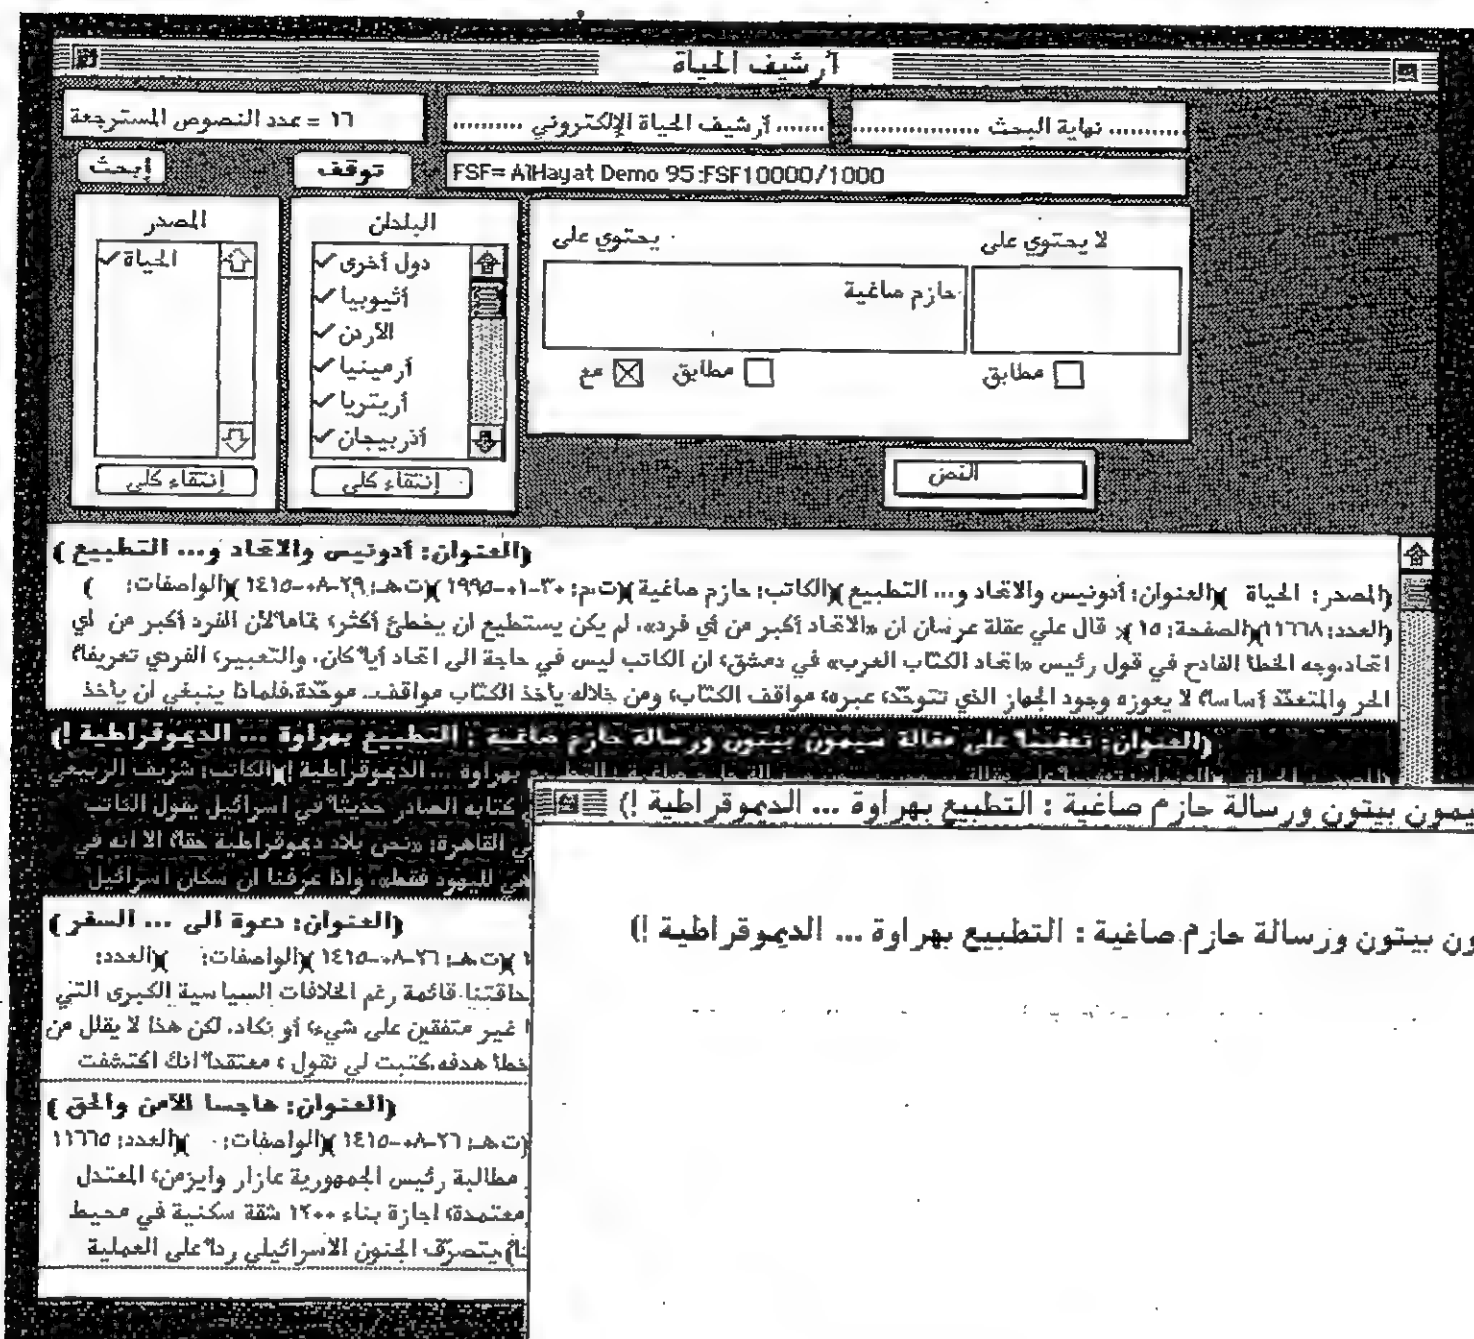 أرشيف الحياة
١٦ = عدد النصوص المسترجعة
....... أرشيف الحياة الإلكتروني ..........
........... نهاية البحث ..................
إبحث
توقف
FSF= AlHayat Demo 95:FSF10000/1000
المصدر
الحياة
إنتقاء كلي
البلدان
دول أخرى
أثيوبيا
الأردن
أرمينيا
أريتريا
أذربيجان
إنتقاء كلي
يحتوي على
لا يحتوي على
حازم صاغية
مع
مطابق
مطابق
النص
(العنوان: أدونيس والاتحاد و... التطبيع )
(المصدر: الحياة )(العنوان: أدونيس والاتحاد و... التطبيع )(الكاتب: حازم صاغية )(ت.م: ٣٠-٠١-١٩٩٥ )(ت.هـ: ٢٩-٠٨-١٤١٥ )(الواصفات: )
(العدد: ١١٦٦٨)(الصفحة: ١٥ ): قال علي عقلة عرسان ان «الاتحاد أكبر من أي فرد». لم يكن يستطيع ان يخطئ أكثر، تماماً لأن الفرد أكبر من أي
اتحاد.وجه الخطأ الفادح في قول رئيس «اتحاد الكتّاب العرب» في دمشق، ان الكاتب ليس في حاجة الى اتحاد أياً كان. والتعبير، الفردي تعريفاً،
الحر والمتعدّد أساساً، لا يعوزه وجود الجهاز الذي تتوحّد، عبره، مواقف الكتّاب، ومن خلاله يأخذ الكتّاب مواقف.. موحّدة.فلماذا ينبغي ان يأخذ
(العنوان: تعقيباً على مقالة سيمون بيتون ورسالة حازم صاغية : التطبيع بهراوة ... الديموقراطية !)
بهراوة ... الديموقراطية !)(الكاتب: شريف الربيعي
كتابه الصادر حديثاً في اسرائيل يقول الكاتب
القاهرة: «نحن بلاد ديموقراطية حقاً، الا انه في
هي لليهود فقط». واذا عرفنا ان سكان اسرائيل
يمون بيتون ورسالة حازم صاغية : التطبيع بهراوة ... الديموقراطية !)
ون بيتون ورسالة حازم صاغية : التطبيع بهراوة ... الديموقراطية !)
(العنوان: دعوة الى ... السفر )
)(ت.هـ: ٢٦-٠٨-١٤١٥ )(الواصفات: )(العدد:
داقتنا قائمة رغم الخلافات السياسية الكبرى التي
غير متفقين على شيء، أو نكاد. لكن هذا لا يقلل من
خطأ هدفه.كتبت لي تقول ، معتقداً انك اكتشفت
(العنوان: هاجسا الأمن والحق )
(ت.هـ: ٢٦-٠٨-١٤١٥ )(الواصفات: )(العدد: ١١٦٦٥
مطالبة رئيس الجمهورية عازار وايزمن، المعتدل
معتمدة، اجازة بناء ١٢٠٠ شقة سكنية في محيط
يتصرّف الجنون الاسرائيلي رداً على العملية